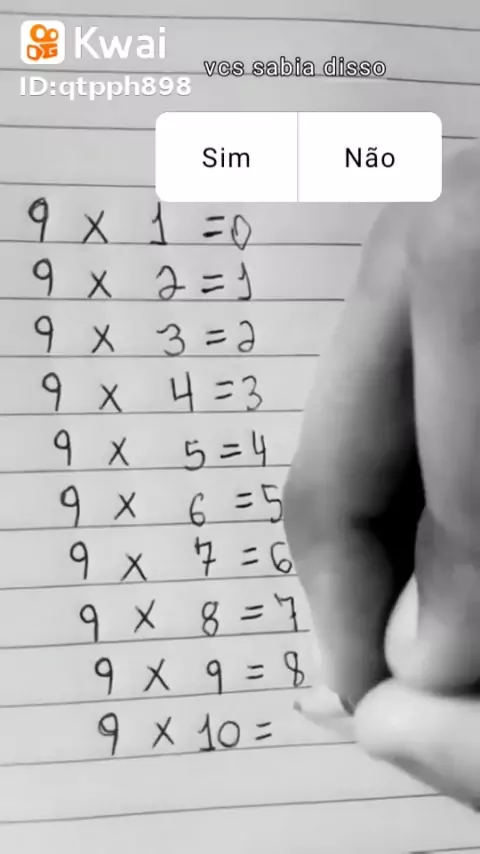 Kwai
ID:qtpph898
vcs sabia disso
Sim Não
9 x 1 =0
9 x 2 =1
9 x 3 =2
9 x 4 =3
9 x 5 =4
9 x 6 =5
9 x 7 =6
9 x 8 =7
9 x 9 =8
9 x 10 =